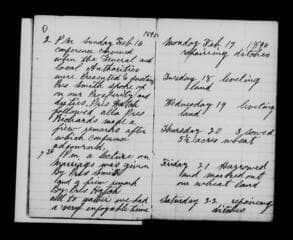 1896
2 P.M. Sunday Feb 16
conference convened
when the General and
local Authorities
were presented & sustained
Pres Smith spoke
on our Prosperity and
duties, Pres Hatch
followed, also Pres
Richards made a
few remarks after
which conference
adjourned,
7 PM a lecture on
marriage was given
By Pres Smith
and a few remarks
By Pres Hatch
all to gather we had
a very enjoyable time
Monday Feb 17 1896
repairing ditches
Tuesday 18 leveling
land
Wednesday 19 leveling
land
Thursday 20 I sowed
5 1/2 acres wheat
Friday 21 Harrowed
land marked out
our wheat land
Saturday 22 repairing
ditches